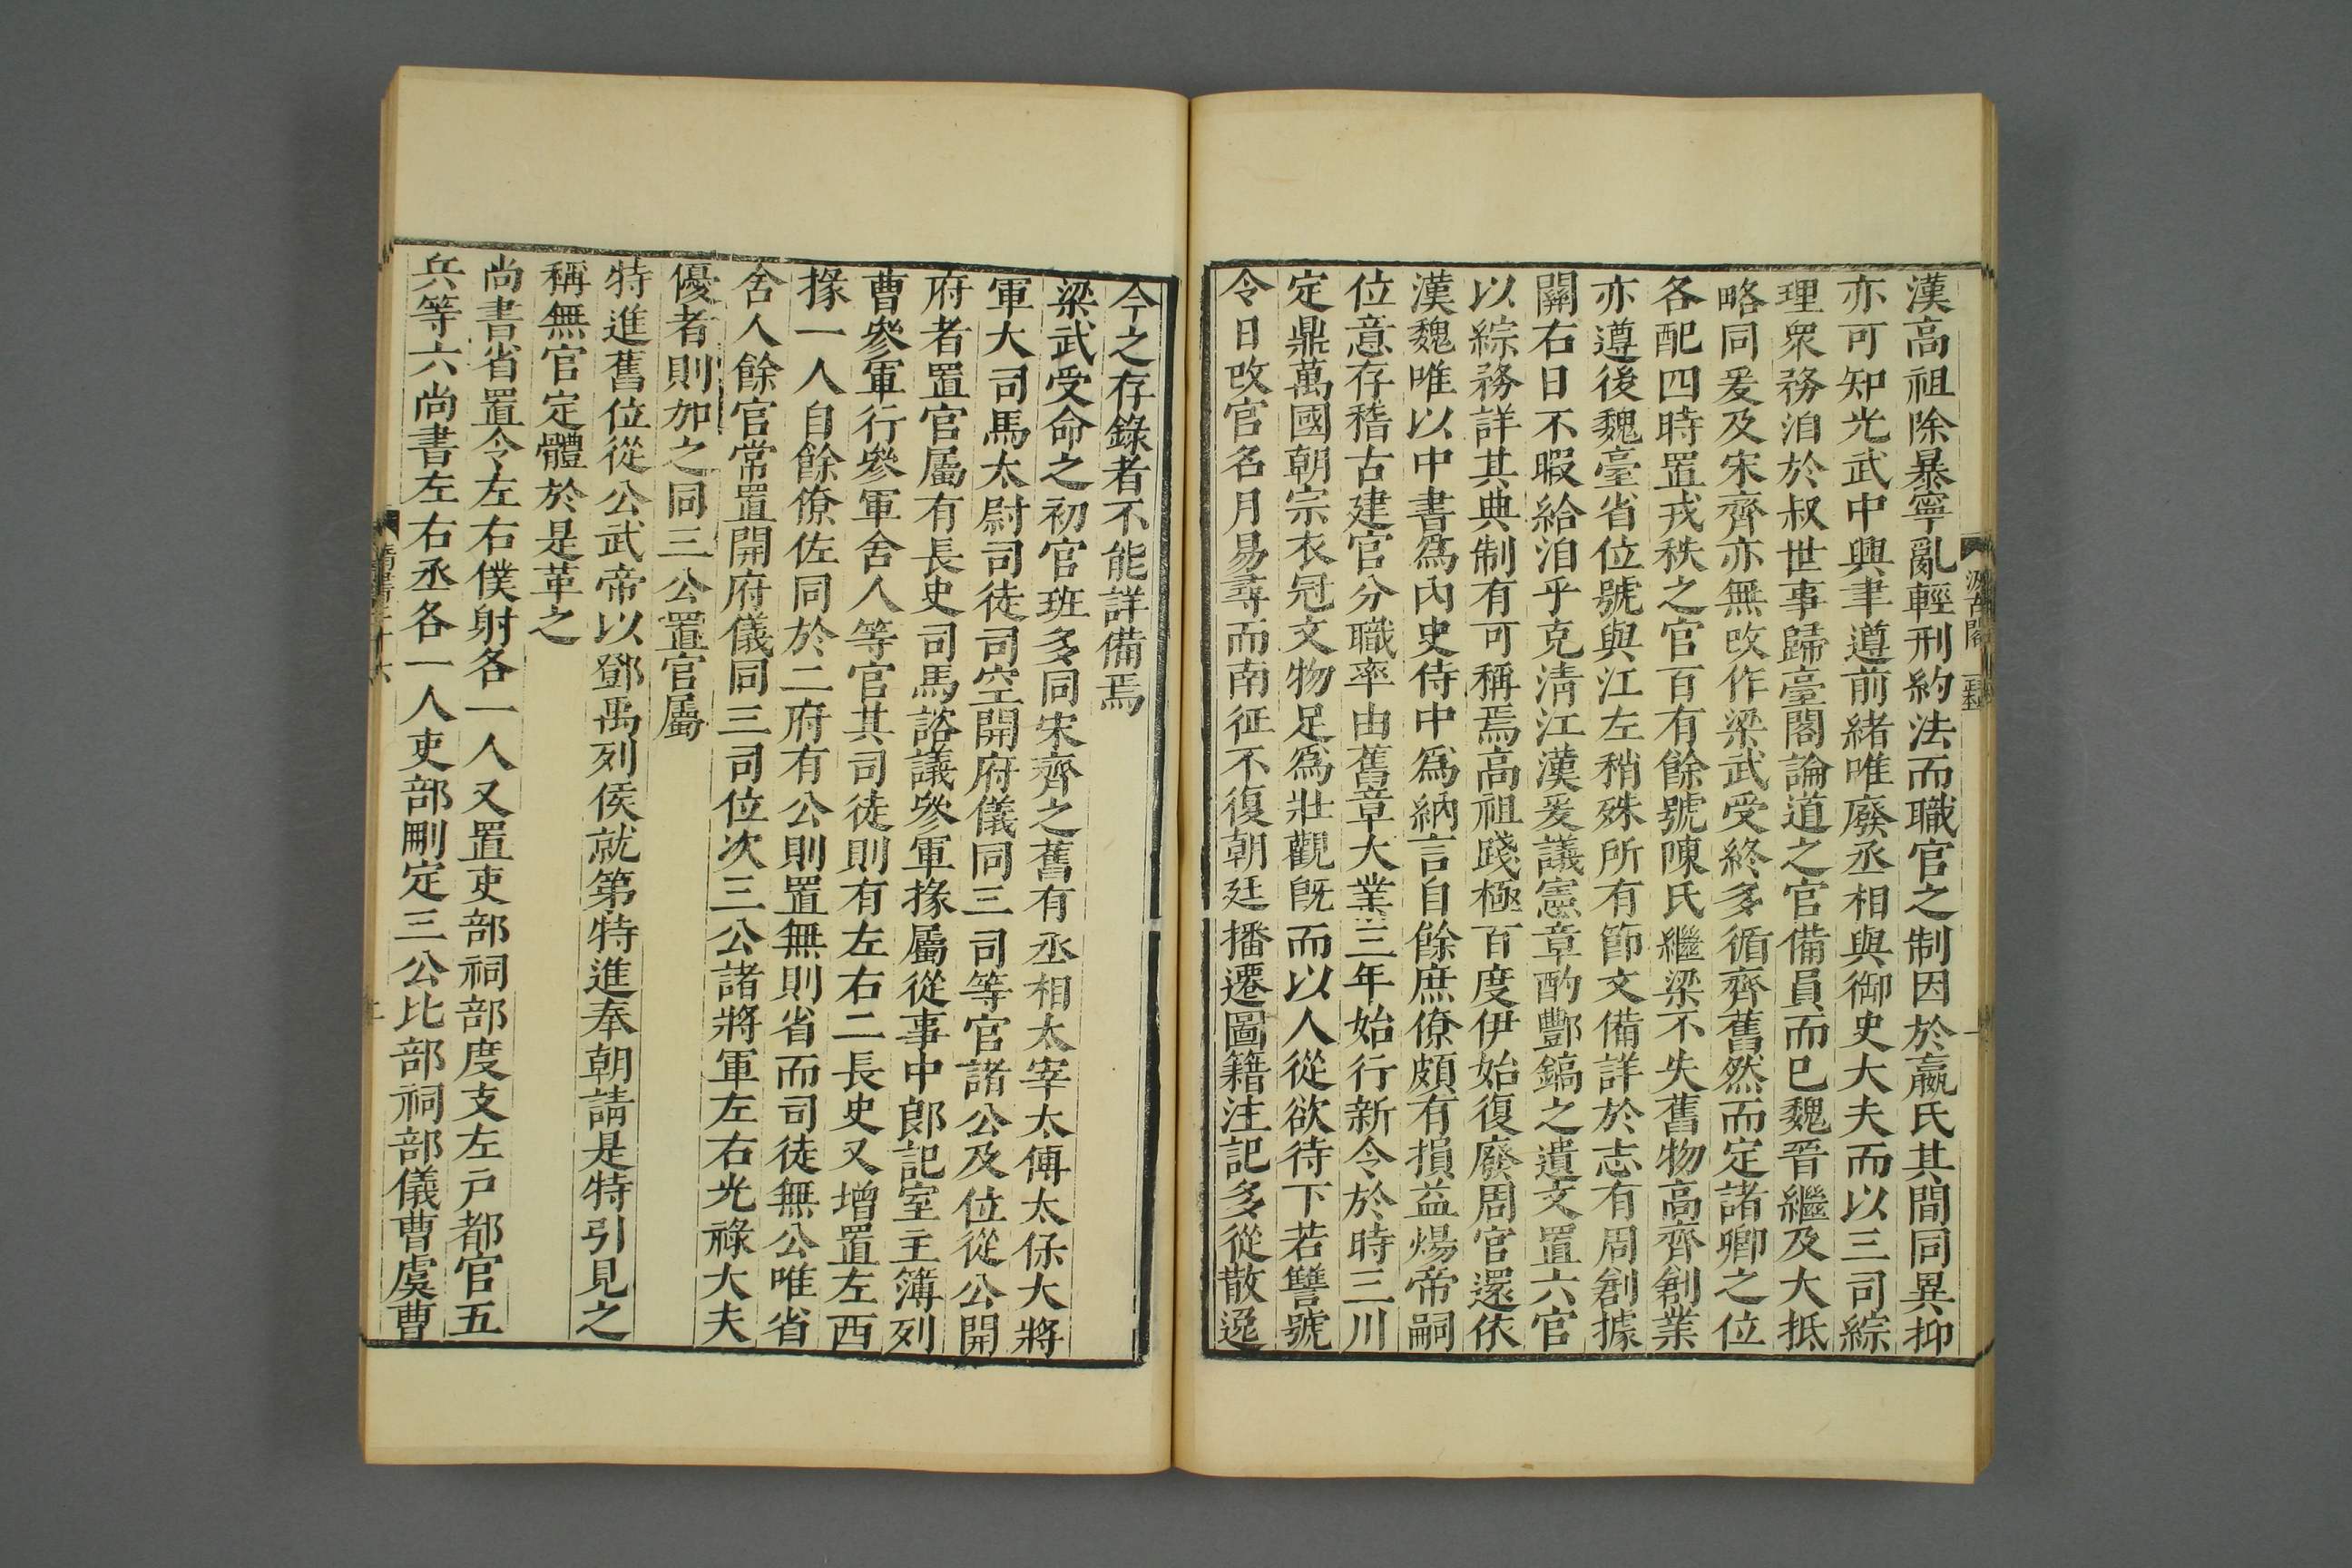 漢高祖除暴寧亂輕刑約法而職官之制因於嬴氏其間同異抑
亦可知光武中興聿遵前緒唯廢丞相與御史大夫而以三司綜
理衆務洎於叔世事歸臺閣論道之官備員而已魏晉繼及大抵
略同爰及宋齊亦無改作梁武受終多循齊舊然而定諸卿之位
各配四時置戎秩之官百有餘號陳氏繼梁不失舊物高齊創業
亦遵後魏臺省位號與江左稍殊所有節文備詳於志有周創據
關右日不暇給洎乎克清江漢爰議憲章酌酆鎬之遺文置六官
以綜務詳其典制有可稱焉高祖踐極百度伊始復廢周官還依
漢魏唯以中書爲內史侍中爲納言自餘庶僚頗有損益煬帝嗣
位意存稽古建官分職率由舊章大業三年始行新令於時三川
定鼎萬國朝宗衣冠文物足爲壯觀旣而以人從欲待下若讐號
令日改官名月易尋而南征不復朝廷播遷圖籍注記多從散逸
汲古閣
今之存錄者不能詳備焉
梁武受命之初官班多同宋齊之舊有丞相太宰太傅太保大將
軍大司馬太尉司徒司空開府儀同三司等官諸公及位從公開
府者置官屬有長史司馬諮議參軍掾屬從事中郎記室主簿列
曹參軍行參軍舍人等官其司徒則有左右二長史又增置左西
掾一人自餘僚佐同於二府有公則置無則省而司徒無公唯省
舍人餘官常置開府儀同三司位次三公諸將軍左右光祿大夫
優者則加之同三公置官屬
特進舊位從公武帝以鄧禹列侯就第特進奉朝請是特引見之
稱無官定體於是革之
尚書省置令左右僕射各一人又置吏部祠部度支左戶都官五
兵等六尚書左右丞各一人吏部刪定三公比部祠部儀曹虞曹